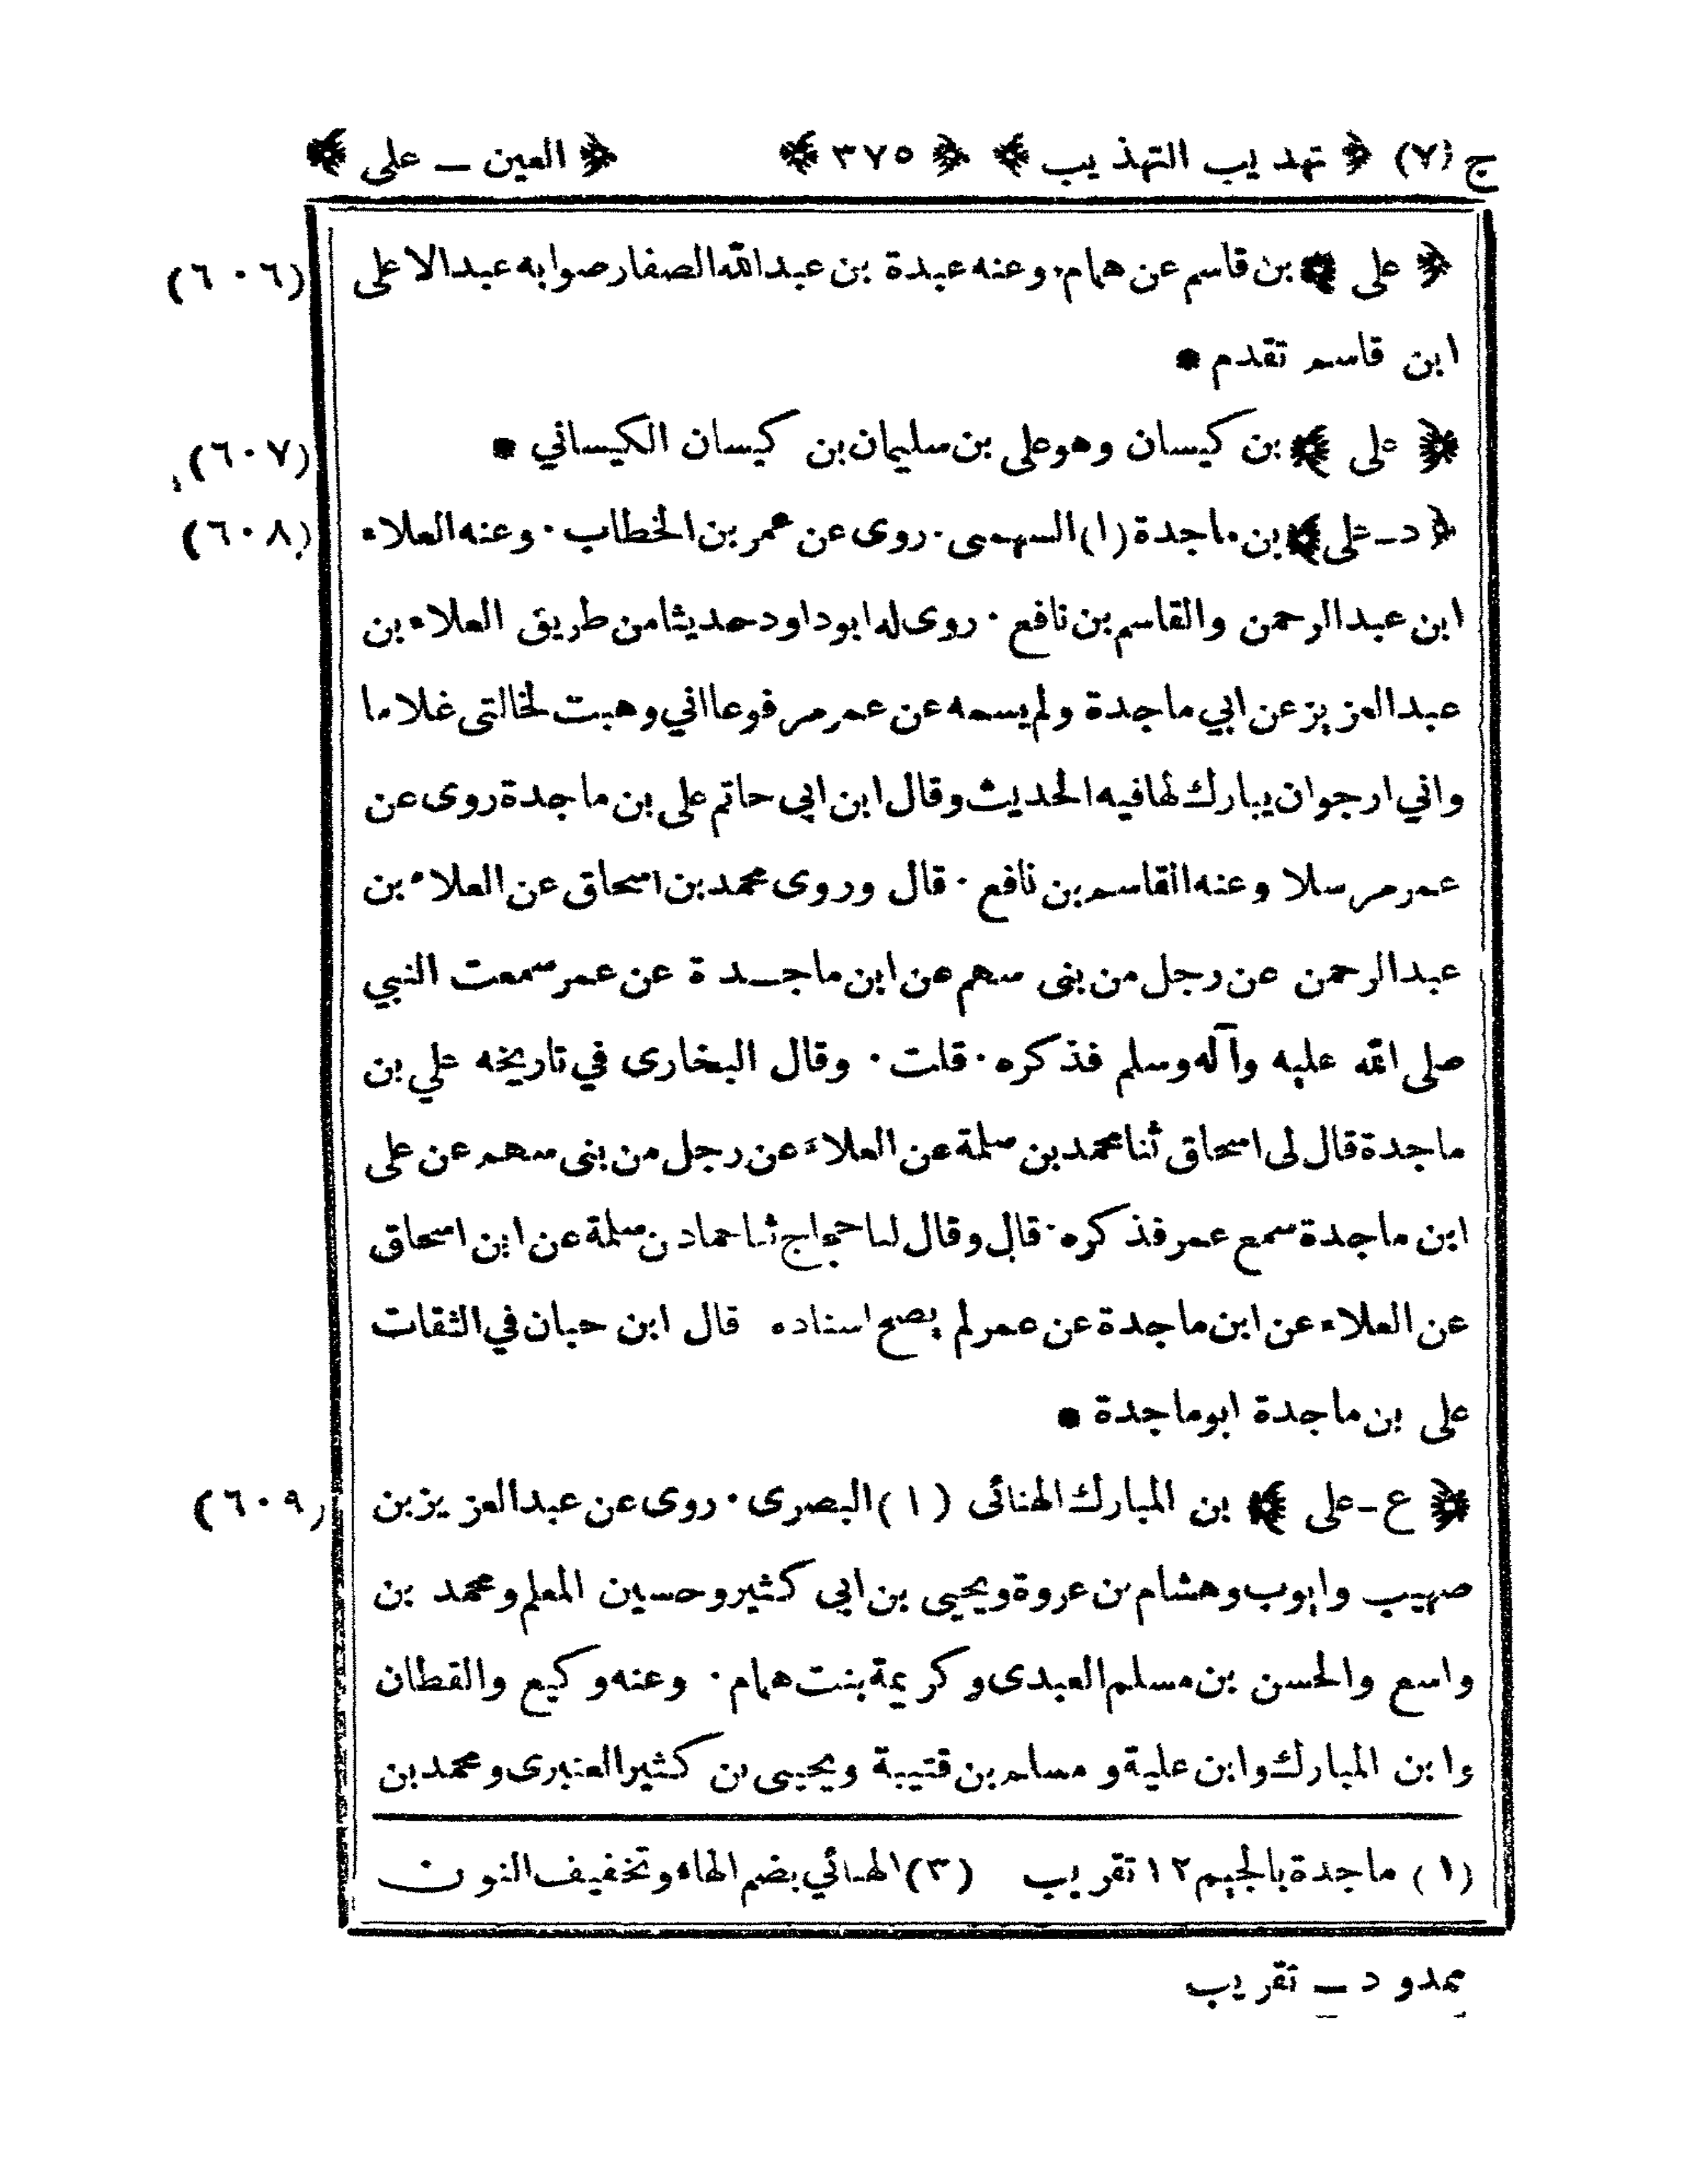 ج (٧) ﴿ تهذيب التهذيب ﴾ ﴿ ٣٧٥ ﴾ ﴿ العين ــ على ﴾
﴿ على ﴾ بن قاسم عن همام٠ وعنه عبدة بن عبدالله الصفار صوابه عبدالاعلى (٦٠٦)
ابن قاسم تقدم *
﴿ على ﴾ بن كيسان وهو على بن سليمان بن كيسان الكيساني * (٦٠٧)
﴿ د ـ على ﴾ بن ماجدة (١) السهمى ٠ روى عن عمر بن الخطاب ٠ وعنه العلاء (٦٠٨)
ابن عبدالرحمن والقاسم بن نافع ٠ روى له ابوداود حديثا من طريق العلاء بن
عبدالعزيز عن ابي ماجدة ولم يسمه عن عمر مرفوعا اني وهبت لخالتى غلاما
واني ارجوان يبارك لها فيه الحديث وقال ابن ابى حاتم على بن ماجدة روى عن
عمر مرسلا وعنه القاسم بن نافع ٠ قال وروى محمد بن اسحاق عن العلاء بن
عبدالرحمن عن رجل من بنى سهم عن ابن ماجـــدة عن عمر سمعت النبي
صلى الله عليه وآله وسلم فذكره ٠ قلت ٠ وقال البخارى في تاريخه علي بن
ماجدة قال لى اسحاق ثنا محمد بن سلمة عن العلاء عن رجل من بنى سهم عن على
ابن ماجدة سمع عمر فذكره ٠ قال وقال لنا حجاج ثنا حماد ن سلمة عن ابن اسحاق
عن العلاء عن ابن ماجدة عن عمر لم يصح اسناده قال ابن حبان في الثقات
على بن ماجدة ابوماجدة *
﴿ ع ـ على ﴾ بن المبارك الهنائى (١) البصرى ٠ روى عن عبدالعزيز بن (٦٠٩)
صهيب وايوب وهشام بن عروة ويحيى بن ابى كثير وحسين المعلم ومحمد بن
واسع والحسن بن مسلم العبدى وكريمة بنت همام ٠ وعنه وكيع والقطان
وابن المبارك وابن علية ومسلم بن قتيبة ويحيى بن كثير العنبرى ومحمد بن
(١) ماجدة بالجيم ١٢ تقريب (٣) الهنائي بضم الهاء وتخفيف النون
ممدود ــ تقريب